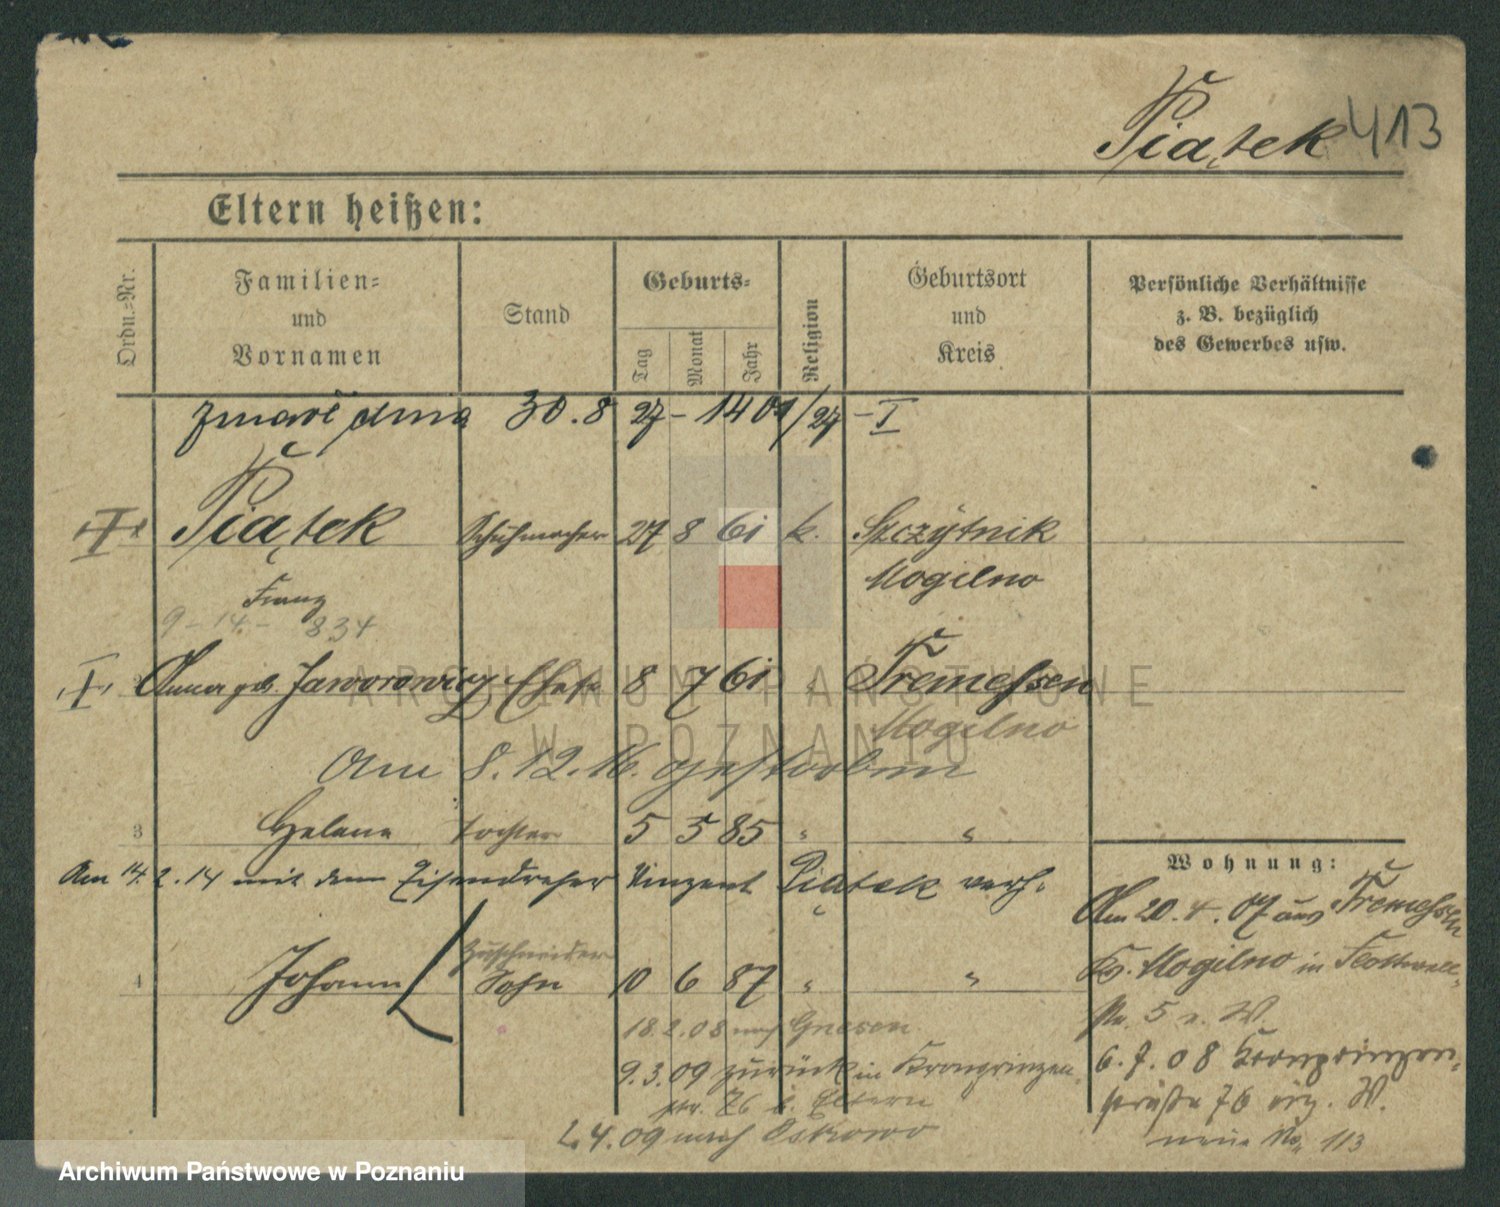 Piątek 413
Eltern heißen:
Ordn.-Nr.
Familien-
und
Vornamen
Stand
Geburts-
Tag
Monat
Jahr
Religion
Geburtsort
und
Kreis
Persönliche Verhältnisse
z. B. bezüglich
des Gewerbes usw.
zmarł dnia 30.8 27 - 1401/27 - I
Piątek Schuhmacher 27 8 61 k. Szczytnik
Mogilno
Franz
9 - 14 - 834
Anna geb. Jaworowicz Ehefr. 8 7 61 " Tremessen
Mogilno
Am 8.12.16. gestorben
3 Helene Tochter 5 5 85 " "
Am 14.2.14 mit dem Eisendreher Vinzent Piątek verh.
Zuschneider
4 Johann Sohn 10 6 87 " "
18.2.08 nach Gnesen
9.3.09 zurück in Kronprinzen-
str. 76 b. Eltern
2.4.09 nach Ostrowo
Wohnung:
Am 20.4.07 aus Tremessen
Kr. Mogilno in Flottwell-
No. 5 z. W.
6.7.08 Kronprinzen-
straße 76 W.
neue No. 113
ARCHIWUM PAŃSTWOWE
W POZNANIU
Archiwum Państwowe w Poznaniu